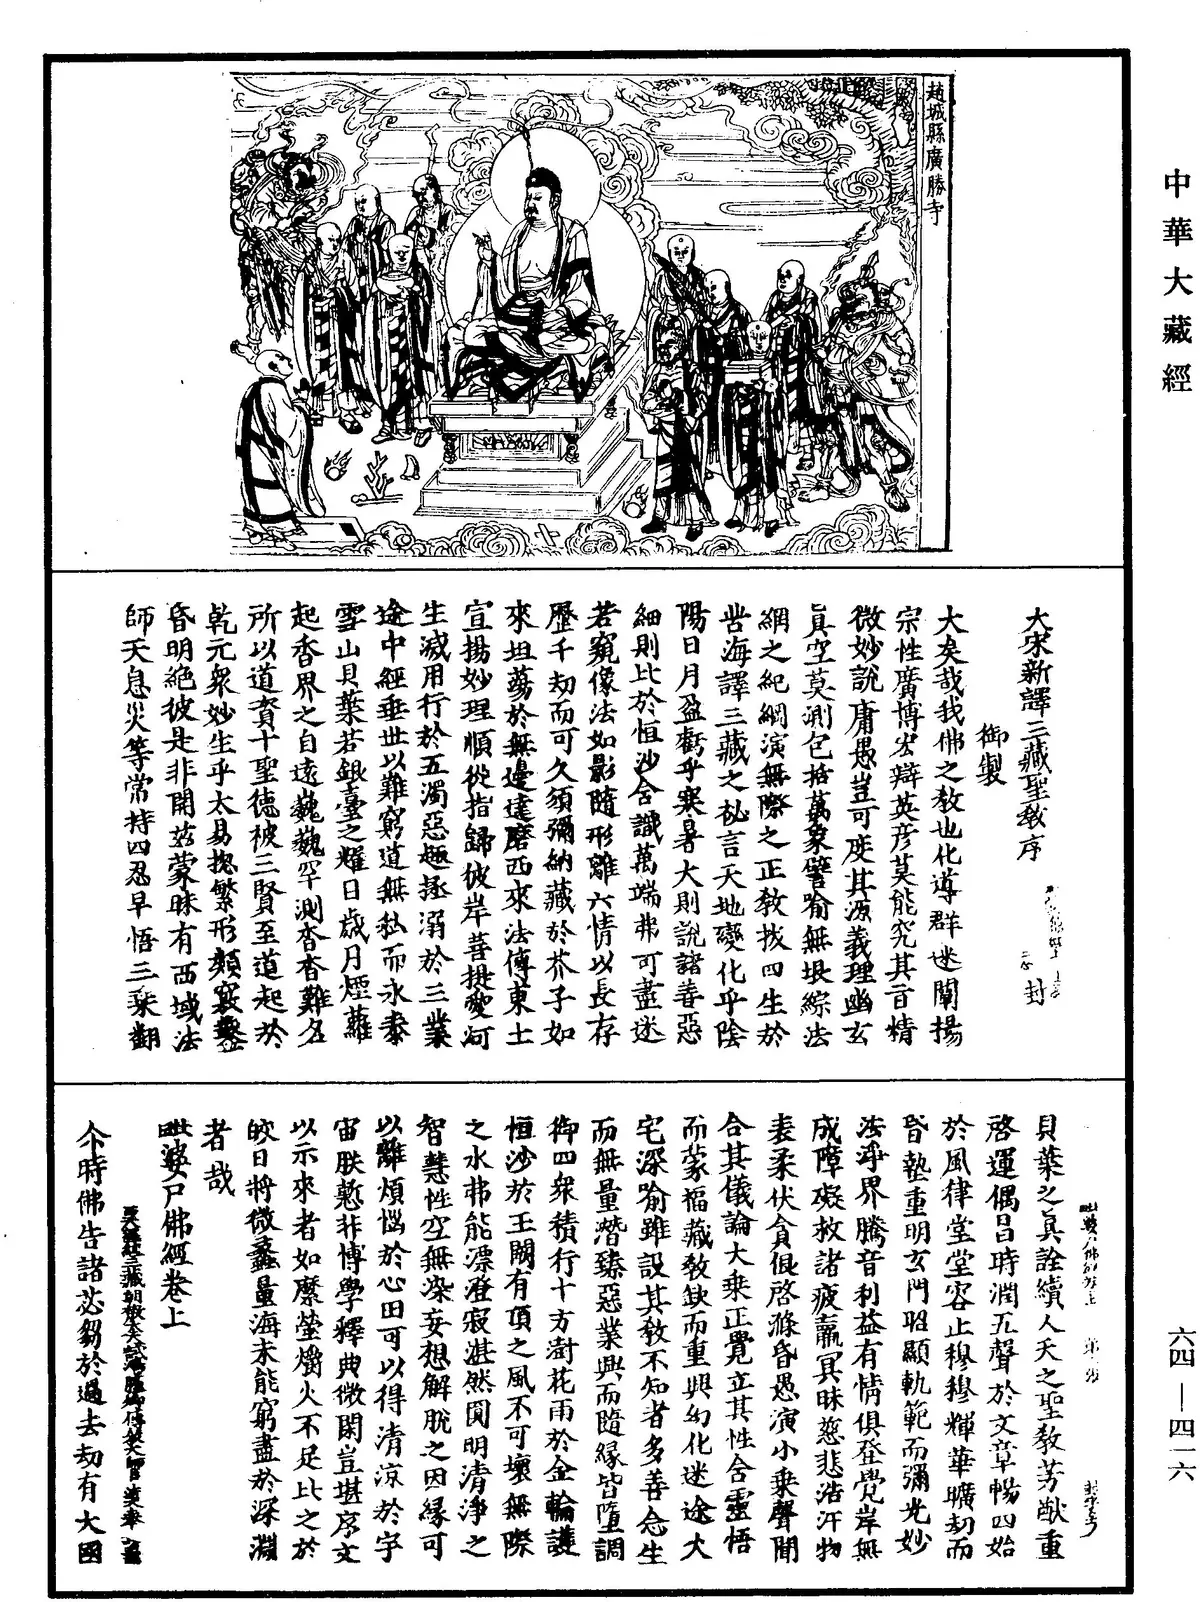 中華大藏經
六四—四一六
趙城縣廣勝寺
大宋新譯三藏聖教序
封
御製
大矣哉我佛之教也化導群迷闡揚
宗性廣博宏辯英彥莫能究其旨精
微妙說庸愚豈可度其源義理幽玄
眞空莫測包括萬象譬喻無垠綜法
網之紀綱演無際之正教拔四生於
苦海譯三藏之祕言天地變化乎陰
陽日月盈虧乎寒暑大則說諸善惡
細則比於恒沙含識萬端弗可盡述
若窺像法如影隨形離六情以長存
歷千劫而可久須彌納藏於芥子如
來坦蕩於無邊達磨西來法傳東土
宣揚妙理順從指歸彼岸菩提愛河
生滅用行於五濁惡趣拯溺於三業
途中經垂世以難窮道無私而永泰
雪山貝葉若銀臺之耀日歲月煙蘿
起香界之自遠巍巍罕測杳杳難名
所以道資十聖德被三賢至道起於
乾元衆妙生乎太易揔繁形類竅鑿
昏明絕彼是非開茲蒙昧有西域法
師天息災等常持四忍早悟三乘翻
貝葉之眞詮續人天之聖教芳猷重
啓運偶昌時潤五聲於文章暢四始
於風律堂堂容止穆穆輝華曠劫而
昏墊重明玄門昭顯軌範而彌光妙
法淨界騰音利益有情俱登覺岸無
成障礙救諸疲羸冥昧慈悲浩汗物
表柔伏貪很啓滌昏愚演小乘聲聞
合其儀論大乘正覺立其性含靈悟
而蒙福藏教缺而重興幻化迷途大
宅深喻雖設其教不知者多善念生
而無量潛臻惡業興而隨緣皆墮調
御四衆積行十方澍花雨於金輪護
恒沙於王闕有頂之風不可壞無際
之水弗能漂澄寂湛然圓明清淨之
智慧性空無染妄想解脫之因緣可
以離煩惱於心田可以得清涼於宇
宙朕慙非博學釋典微閑豈堪序文
以示來者如縻螢爝火不足比之於
皎日將微蠡量海未能窮盡於深淵
者哉
毗婆尸佛經卷上
尒時佛告諸苾芻於過去劫有大國